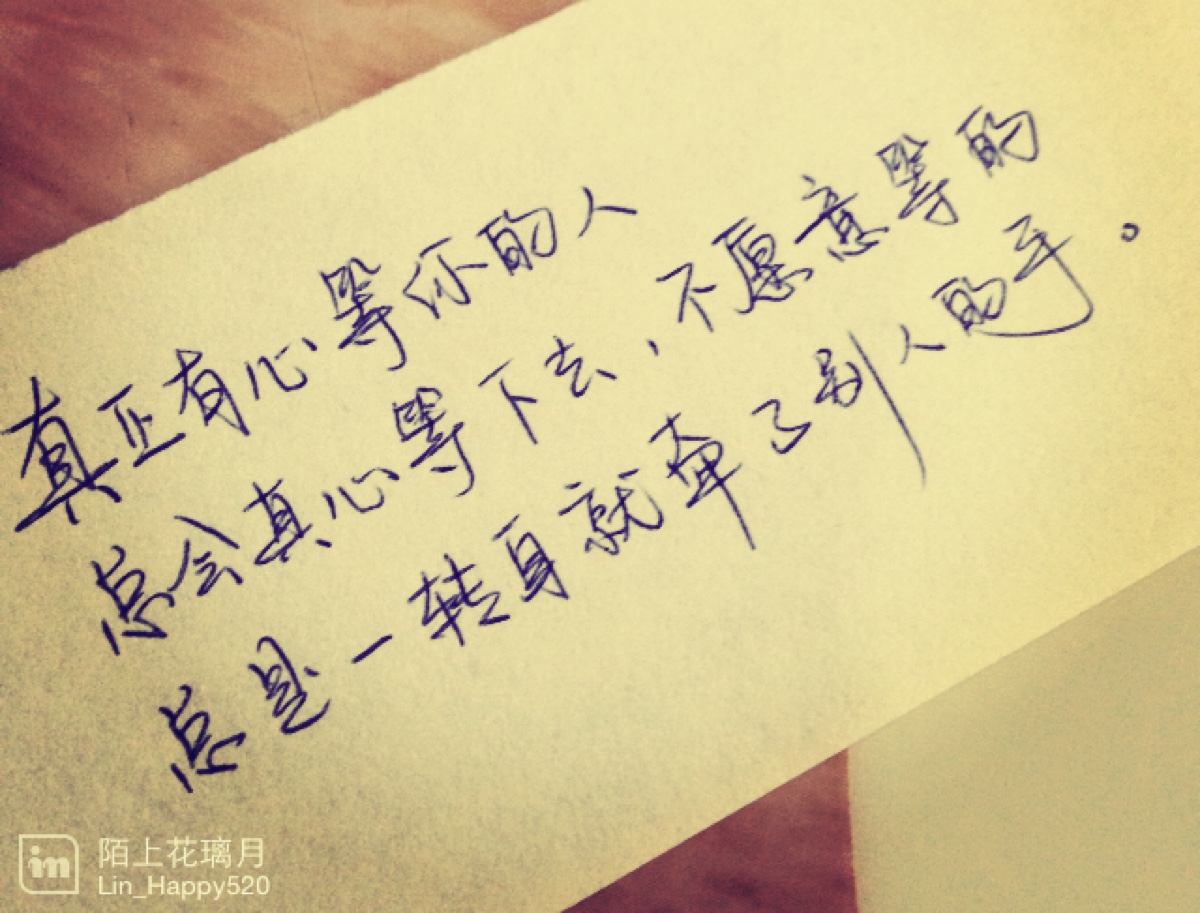 真正有心等你的人
总会真心等下去，不愿意等的
总是一转身就牵了别人的手。
陌上花璃月
Lin_Happy520